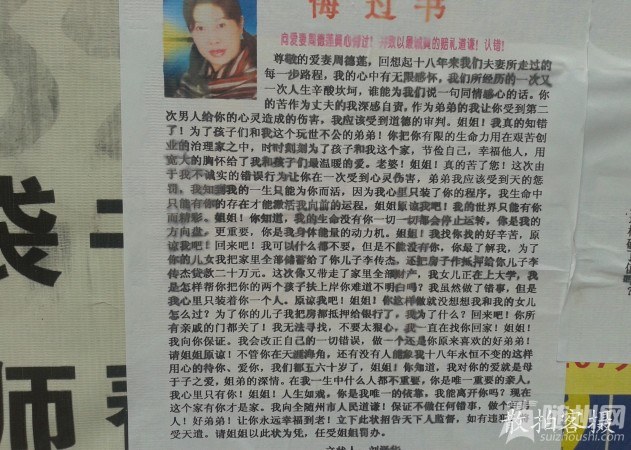 悔过书
向爱妻周德莲真心悔过！并致以最诚真的赔礼道谦！认错！
尊敬的爱妻周德莲，回想起十八年来我们夫妻所走过的
每一步路程，我的心中有无限感怀，我们所经历的一次又
一次人生辛酸坎坷，谁能为我们说一句同情感心的话。你
的苦作为丈夫的我深感自责，作为弟弟的我让你受到第二
次男人给你的心灵造成的伤害，我应该受到道德的审判。姐姐！我真的知错
了！为了孩子们和我这个玩世不公的弟弟！你把你有限的生命力用在艰苦创
业的治理家之中，时时刻刻为了孩子和我这个家，节俭自己，幸福他人，用
宽大的胸怀给了我和孩子们最温暖的爱。老婆！姐姐！真的苦了您！这次由
于我不诚实的错误行为让你在一次受到心灵伤害，弟弟我应该受到天的惩
罚。我知到我的一生只能为你而活，因为我心里只装了你的程序，我生命中
只能有你的存在才能激活我向前的运程，姐姐原谅我吧！我的世界只能有你
而精彩。姐姐！你知道，我的生命没有你一切一切都会停止运转，你是我的
方向盘，更重要，你是我身体能量的动力机。姐姐！我找你找的好辛苦，原
谅我吧！回来吧！我可以什么都不要，但是不能没有你，你最了解我，为了
你的儿女我把家里全部储蓄给了你儿子李传杰，还把房子作抵押给你儿子李
传杰贷款二十万元。这次你又带走了家里全部财产，我女儿正在上大学，我
是怎样帮你把你的两个孩子扶上岸你难道不明白吗？我虽然做了错事，但是
我心里只装着你一个人。原谅我吧！姐姐！你这样做就没想想我和我的女儿
怎么过？为了你的儿子我把房都抵押给银行了，我为了什么？回来吧！你所
有亲戚的门都关了！我无法寻找，不要太狠心，我一直在找你回家！姐姐！
我向你保证。我会改正自己的一切错误，做一个还是你原来喜欢的好弟弟！
请姐姐原谅！不管你在天涯海角，还有没有人能象我十八年永恒不变的这样
用心的待你、爱你，我们都五六十岁了，姐姐！你知道，我对你的爱就是母
于子之爱，姐弟的深情。在我一生中什么人都不重要，你是唯一重要的亲人，
我心里只有你！姐姐！人生如戏，你是我唯一的依靠，我能离开你吗？现在
这个家有你才是家。我向全随州市人民道谦！保证不做任何错事，做个
人！好弟弟！让你永远幸福到老！立下此状招告天下人监督，如有违
受天遣。请姐姐以此状为凭，任受姐姐罚办。
袋
师
散拍客摄
随州网
suizhoushi.com